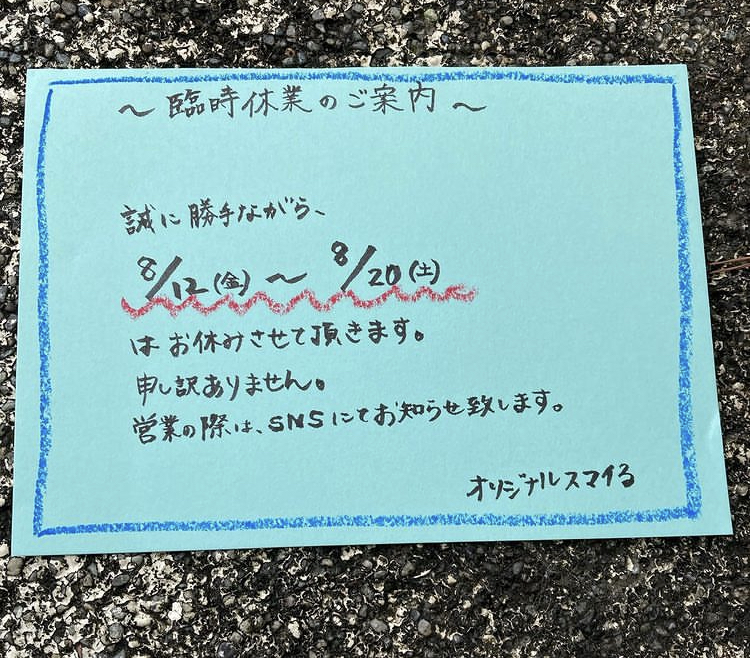 ～臨時休業のご案内～
誠に勝手ながら、
8/12(金)～8/20(土)
はお休みさせて頂きます。
申し訳ありません。
営業の際は、SNSにてお知らせ致します。
オリジナルスマイる